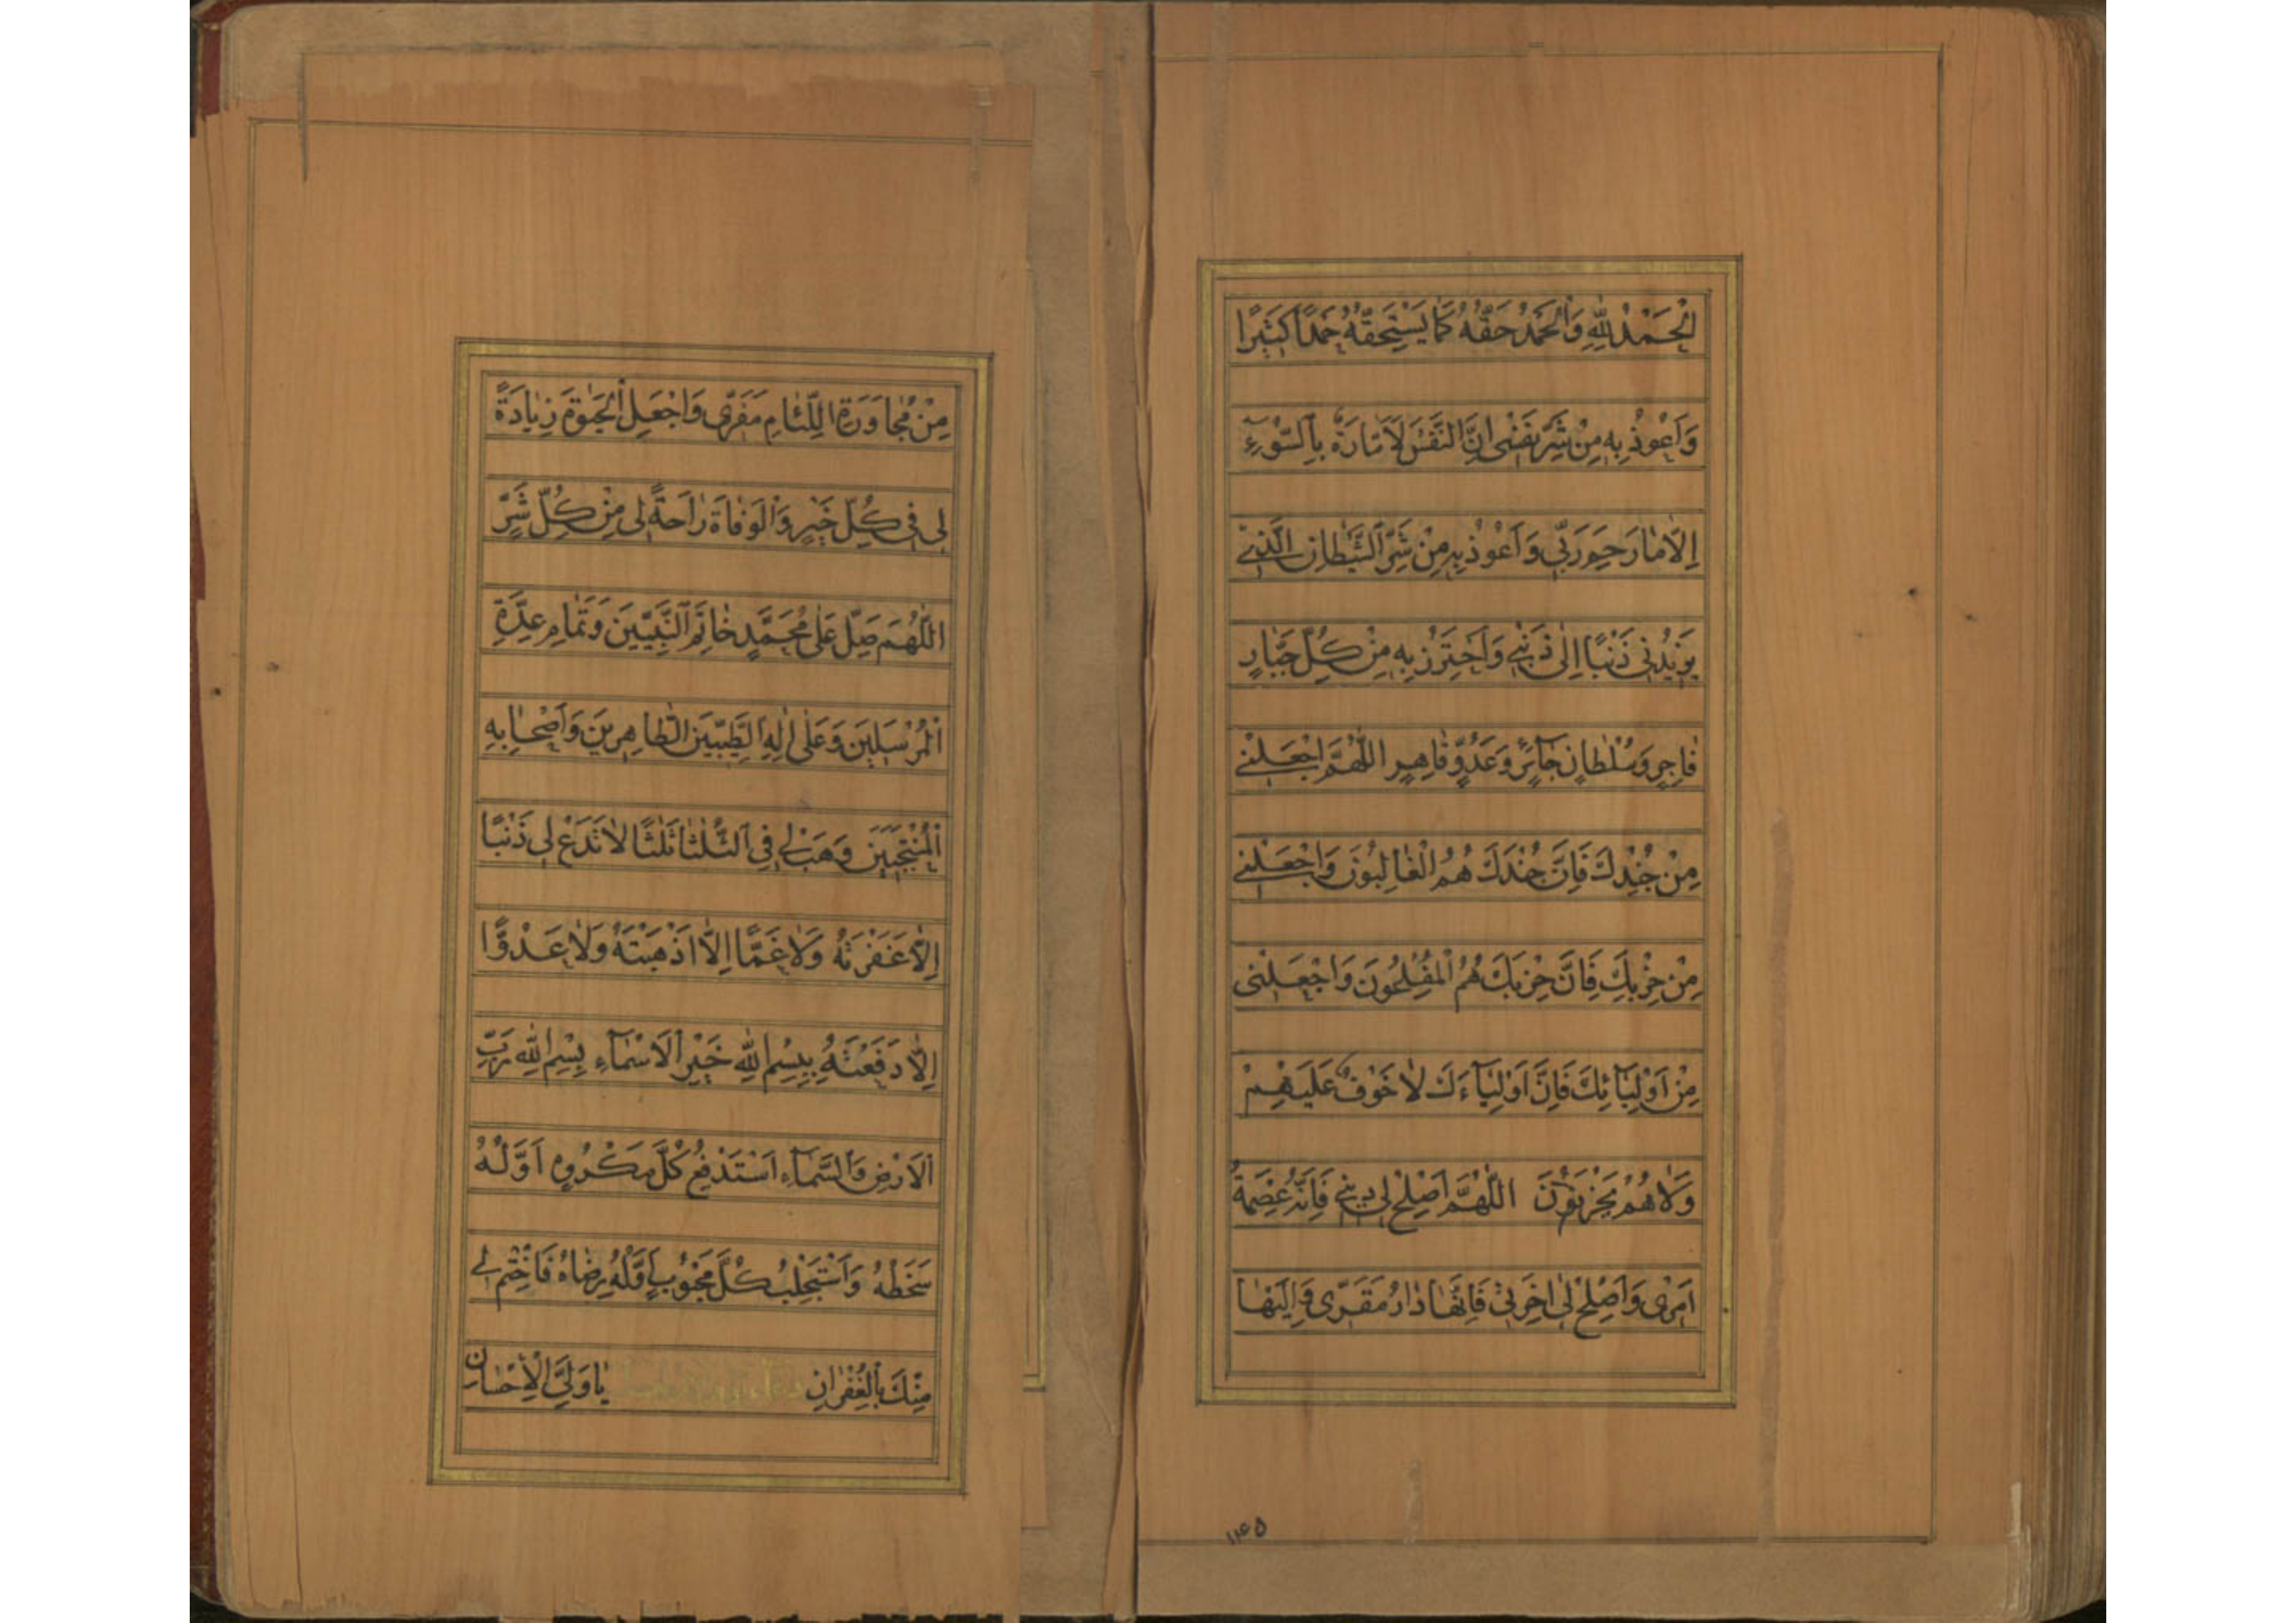 اَلْحَمْدُ لِلّٰهِ وَالْحَمْدُ حَقُّهُ كَمٰا يَسْتَحِقُّهُ حَمْدًا كَثِيرًا
وَاَعُوذُ بِهِ مِنْ شَرِّ نَفْسٖى اِنَّ النَّفْسَ لَاَمّٰارَةٌ بِالسُّوۤءِ
اِلّٰا مٰا رَحِمَ رَبّٖى وَاَعُوذُ بِهِ مِنْ شَرِّ الشَّيْطٰانِ الَّذٖى
يَزٖيدُنٖى ذَنْبًا اِلٰى ذَنْبٖى وَاَحْتَرِزُ بِهِ مِنْ كُلِّ جَبّٰارٍ
فٰاجِرٍ وَسُلْطٰانٍ جٰآئِرٍ وَعَدُوٍّ قٰاهِرٍ اَللّٰهُمَّ اجْعَلْنٖى
مِنْ جُنْدِكَ فَاِنَّ جُنْدَكَ هُمُ الْغٰالِبُونَ وَاجْعَلْنٖى
مِنْ حِزْبِكَ فَاِنَّ حِزْبَكَ هُمُ الْمُفْلِحُونَ وَاجْعَلْنٖى
مِنْ اَوْلِيٰآئِكَ فَاِنَّ اَوْلِيٰآءَكَ لٰا خَوْفٌ عَلَيْهِمْ
وَلٰا هُمْ يَحْزَنُوْنَ اَللّٰهُمَّ اَصْلِحْ لٖى دٖينٖى فَاِنَّهُ عِصْمَةُ
اَمْرٖى وَاَصْلِحْ لٖى اٰخِرَتٖى فَاِنَّهٰا دٰارُ مَقَرّٖى وَاِلَيْهٰا
۱۴۵
مِنْ مُجٰاوَرَةِ اللِّئٰامِ مَفَرّٖى وَاجْعَلِ الْحَيٰوةَ زِيٰادَةً
لٖى فٖى كُلِّ خَيْرٍ وَالْوَفٰاةَ رٰاحَةً لٖى مِنْ كُلِّ شَرٍّ
اَللّٰهُمَّ صَلِّ عَلٰى مُحَمَّدٍ خٰاتَمِ النَّبِيّٖينَ وَتَمٰامِ عِدَّةِ
الْمُرْسَلٖينَ وَعَلٰى اٰلِهِ الطَّيِّبٖينَ الطّٰاهِرٖينَ وَاَصْحٰابِهِ
الْمُنْتَجَبٖينَ وَهَبْ لٖى فِى الثُّلٰثٰا ثَلٰثًا لٰا تَدَعْ لٖى ذَنْبًا
اِلّٰا غَفَرْتَهُ وَلٰا غَمًّا اِلّٰا اَذْهَبْتَهُ وَلٰا عَدُوًّا
اِلّٰا دَفَعْتَهُ بِبِسْمِ اللّٰهِ خَيْرِ الْاَسْمٰآءِ بِسْمِ اللّٰهِ رَبِّ
الْاَرْضِ وَالسَّمٰآءِ اَسْتَدْفِعُ كُلَّ مَكْرُوهٍ اَوَّلُهُ
سَخَطُهُ وَاَسْتَجْلِبُ كُلَّ مَحْبُوبٍ اَوَّلُهُ رِضٰاهُ فَاخْتِمْ لٖى
مِنْكَ بِالْغُفْرٰانِ يٰا وَلِىَّ الْاِحْسٰانِ